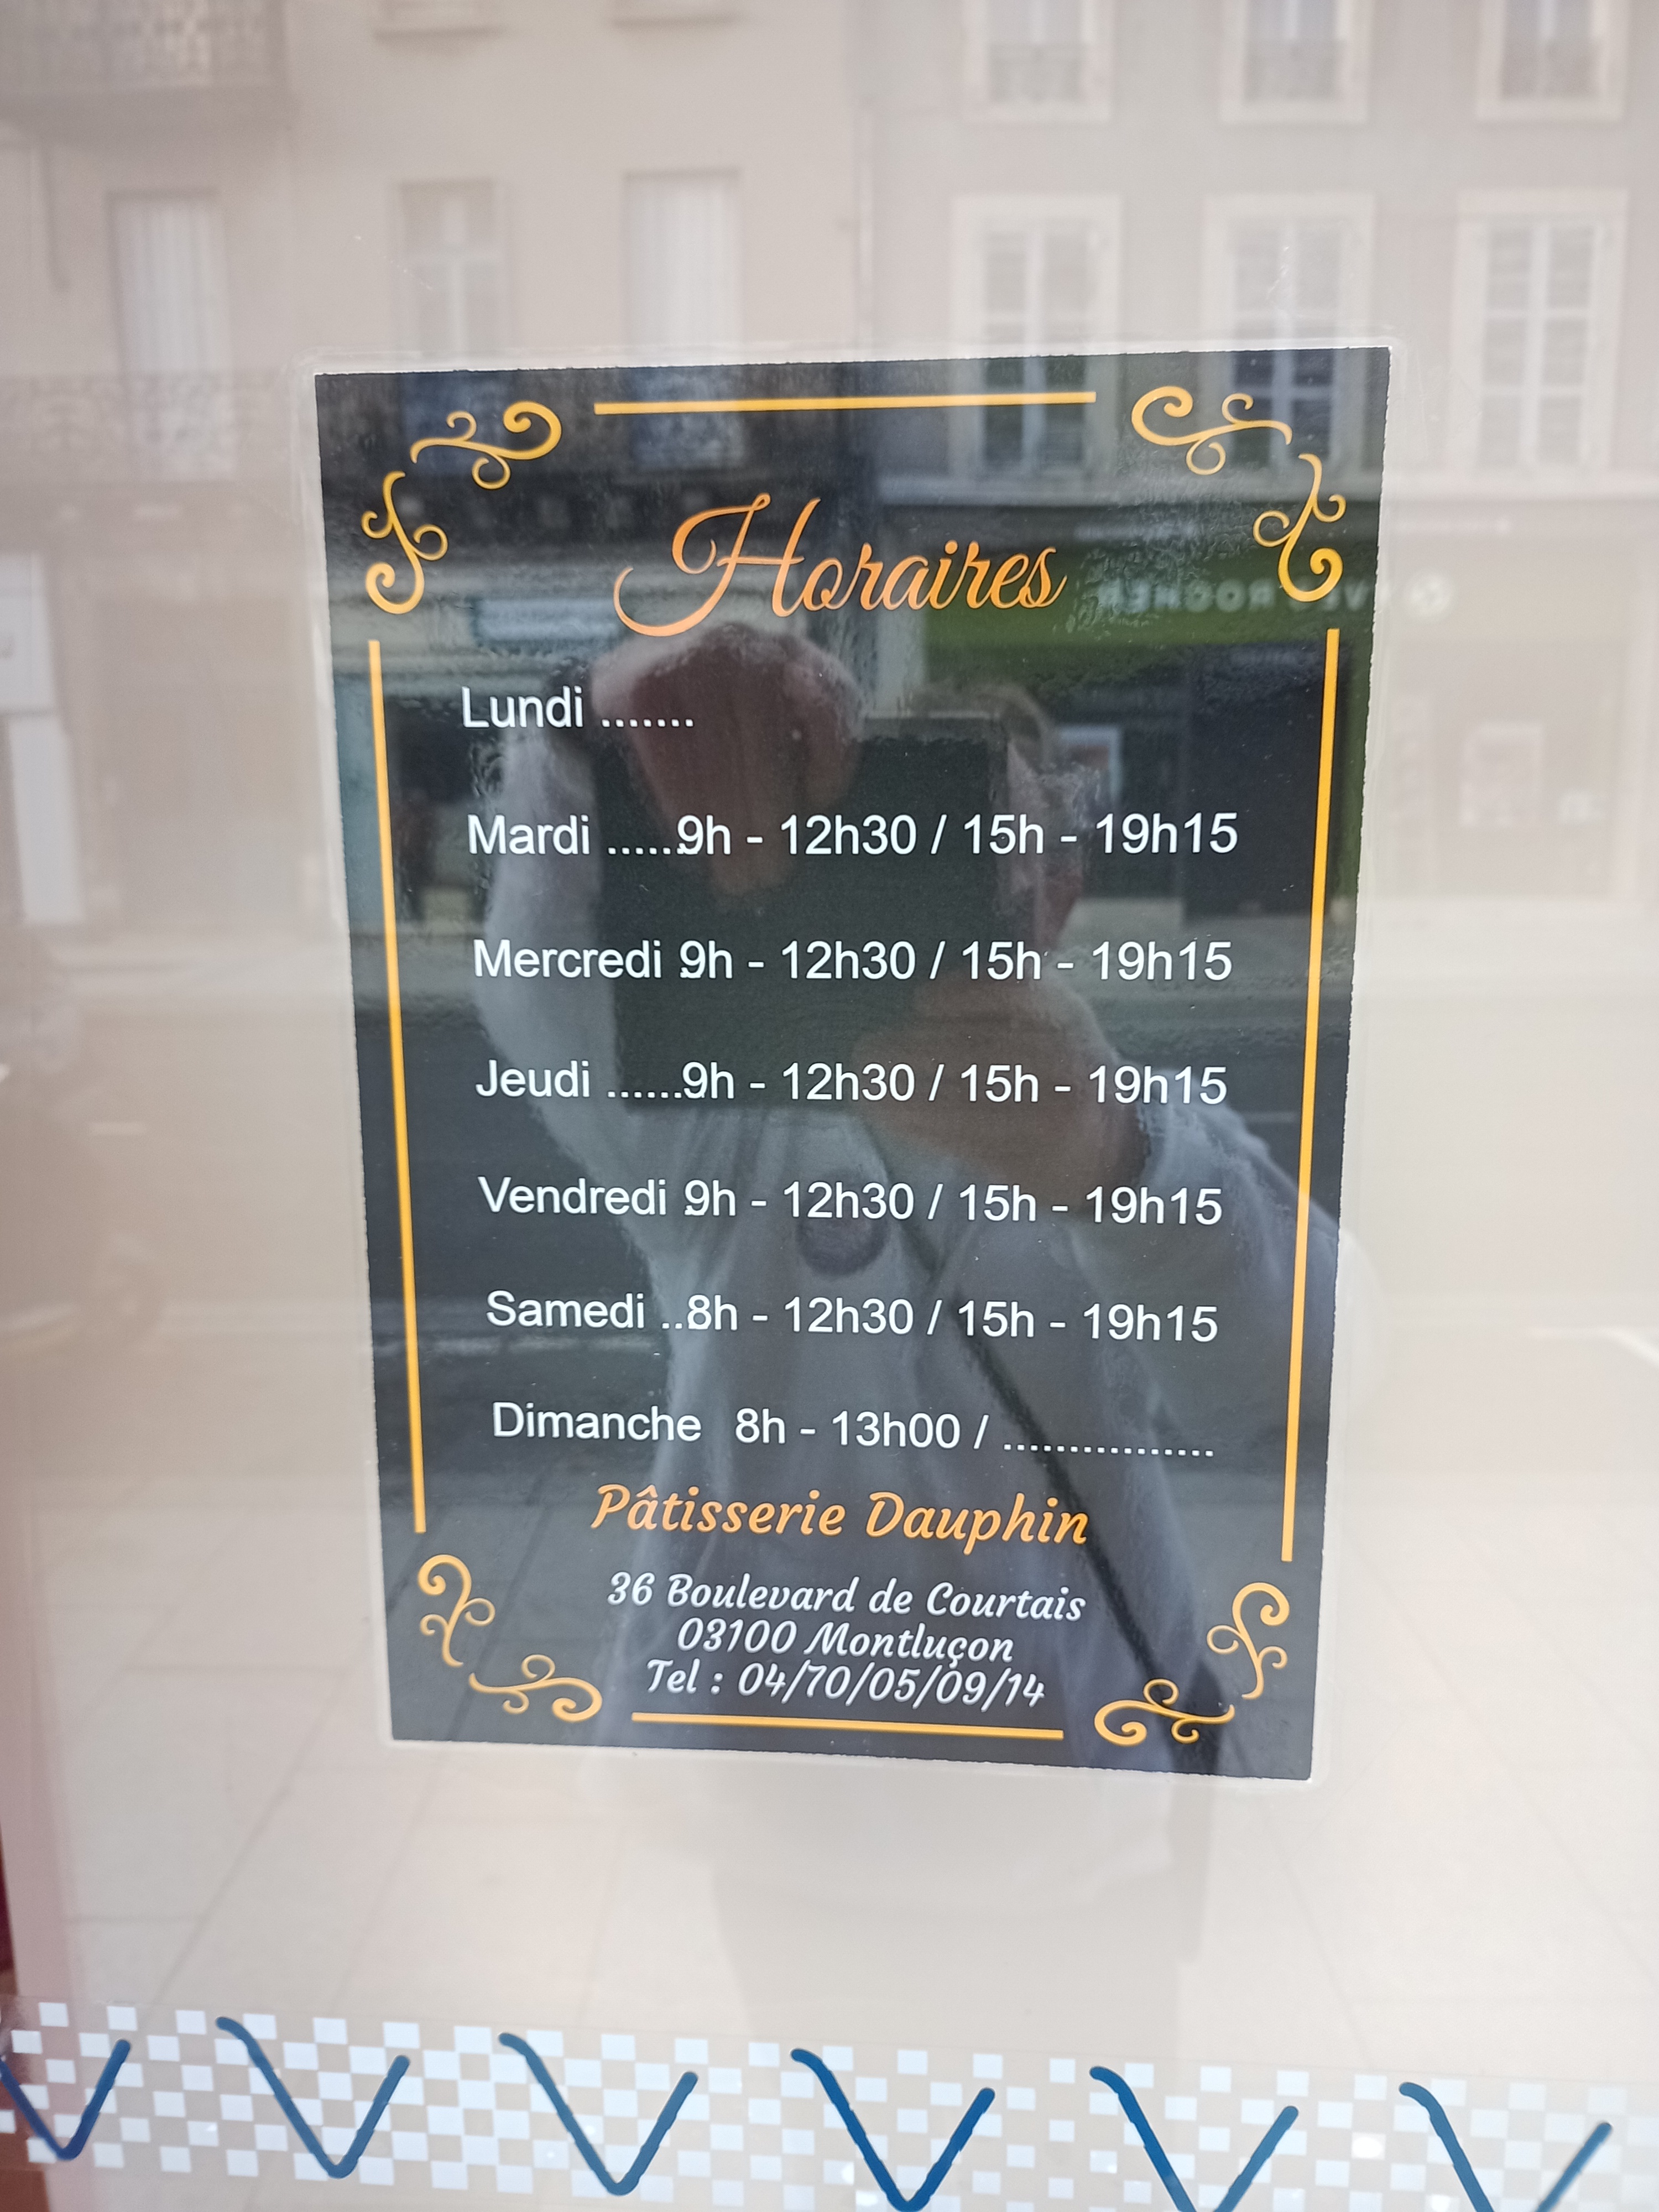 Horaires
YVES ROCHER
Lundi .......
Mardi ......9h - 12h30 / 15h - 19h15
Mercredi 9h - 12h30 / 15h - 19h15
Jeudi ......9h - 12h30 / 15h - 19h15
Vendredi 9h - 12h30 / 15h - 19h15
Samedi ..8h - 12h30 / 15h - 19h15
Dimanche 8h - 13h00 / ................
Pâtisserie Dauphin
36 Boulevard de Courtais
03100 Montluçon
Tel : 04/70/05/09/14